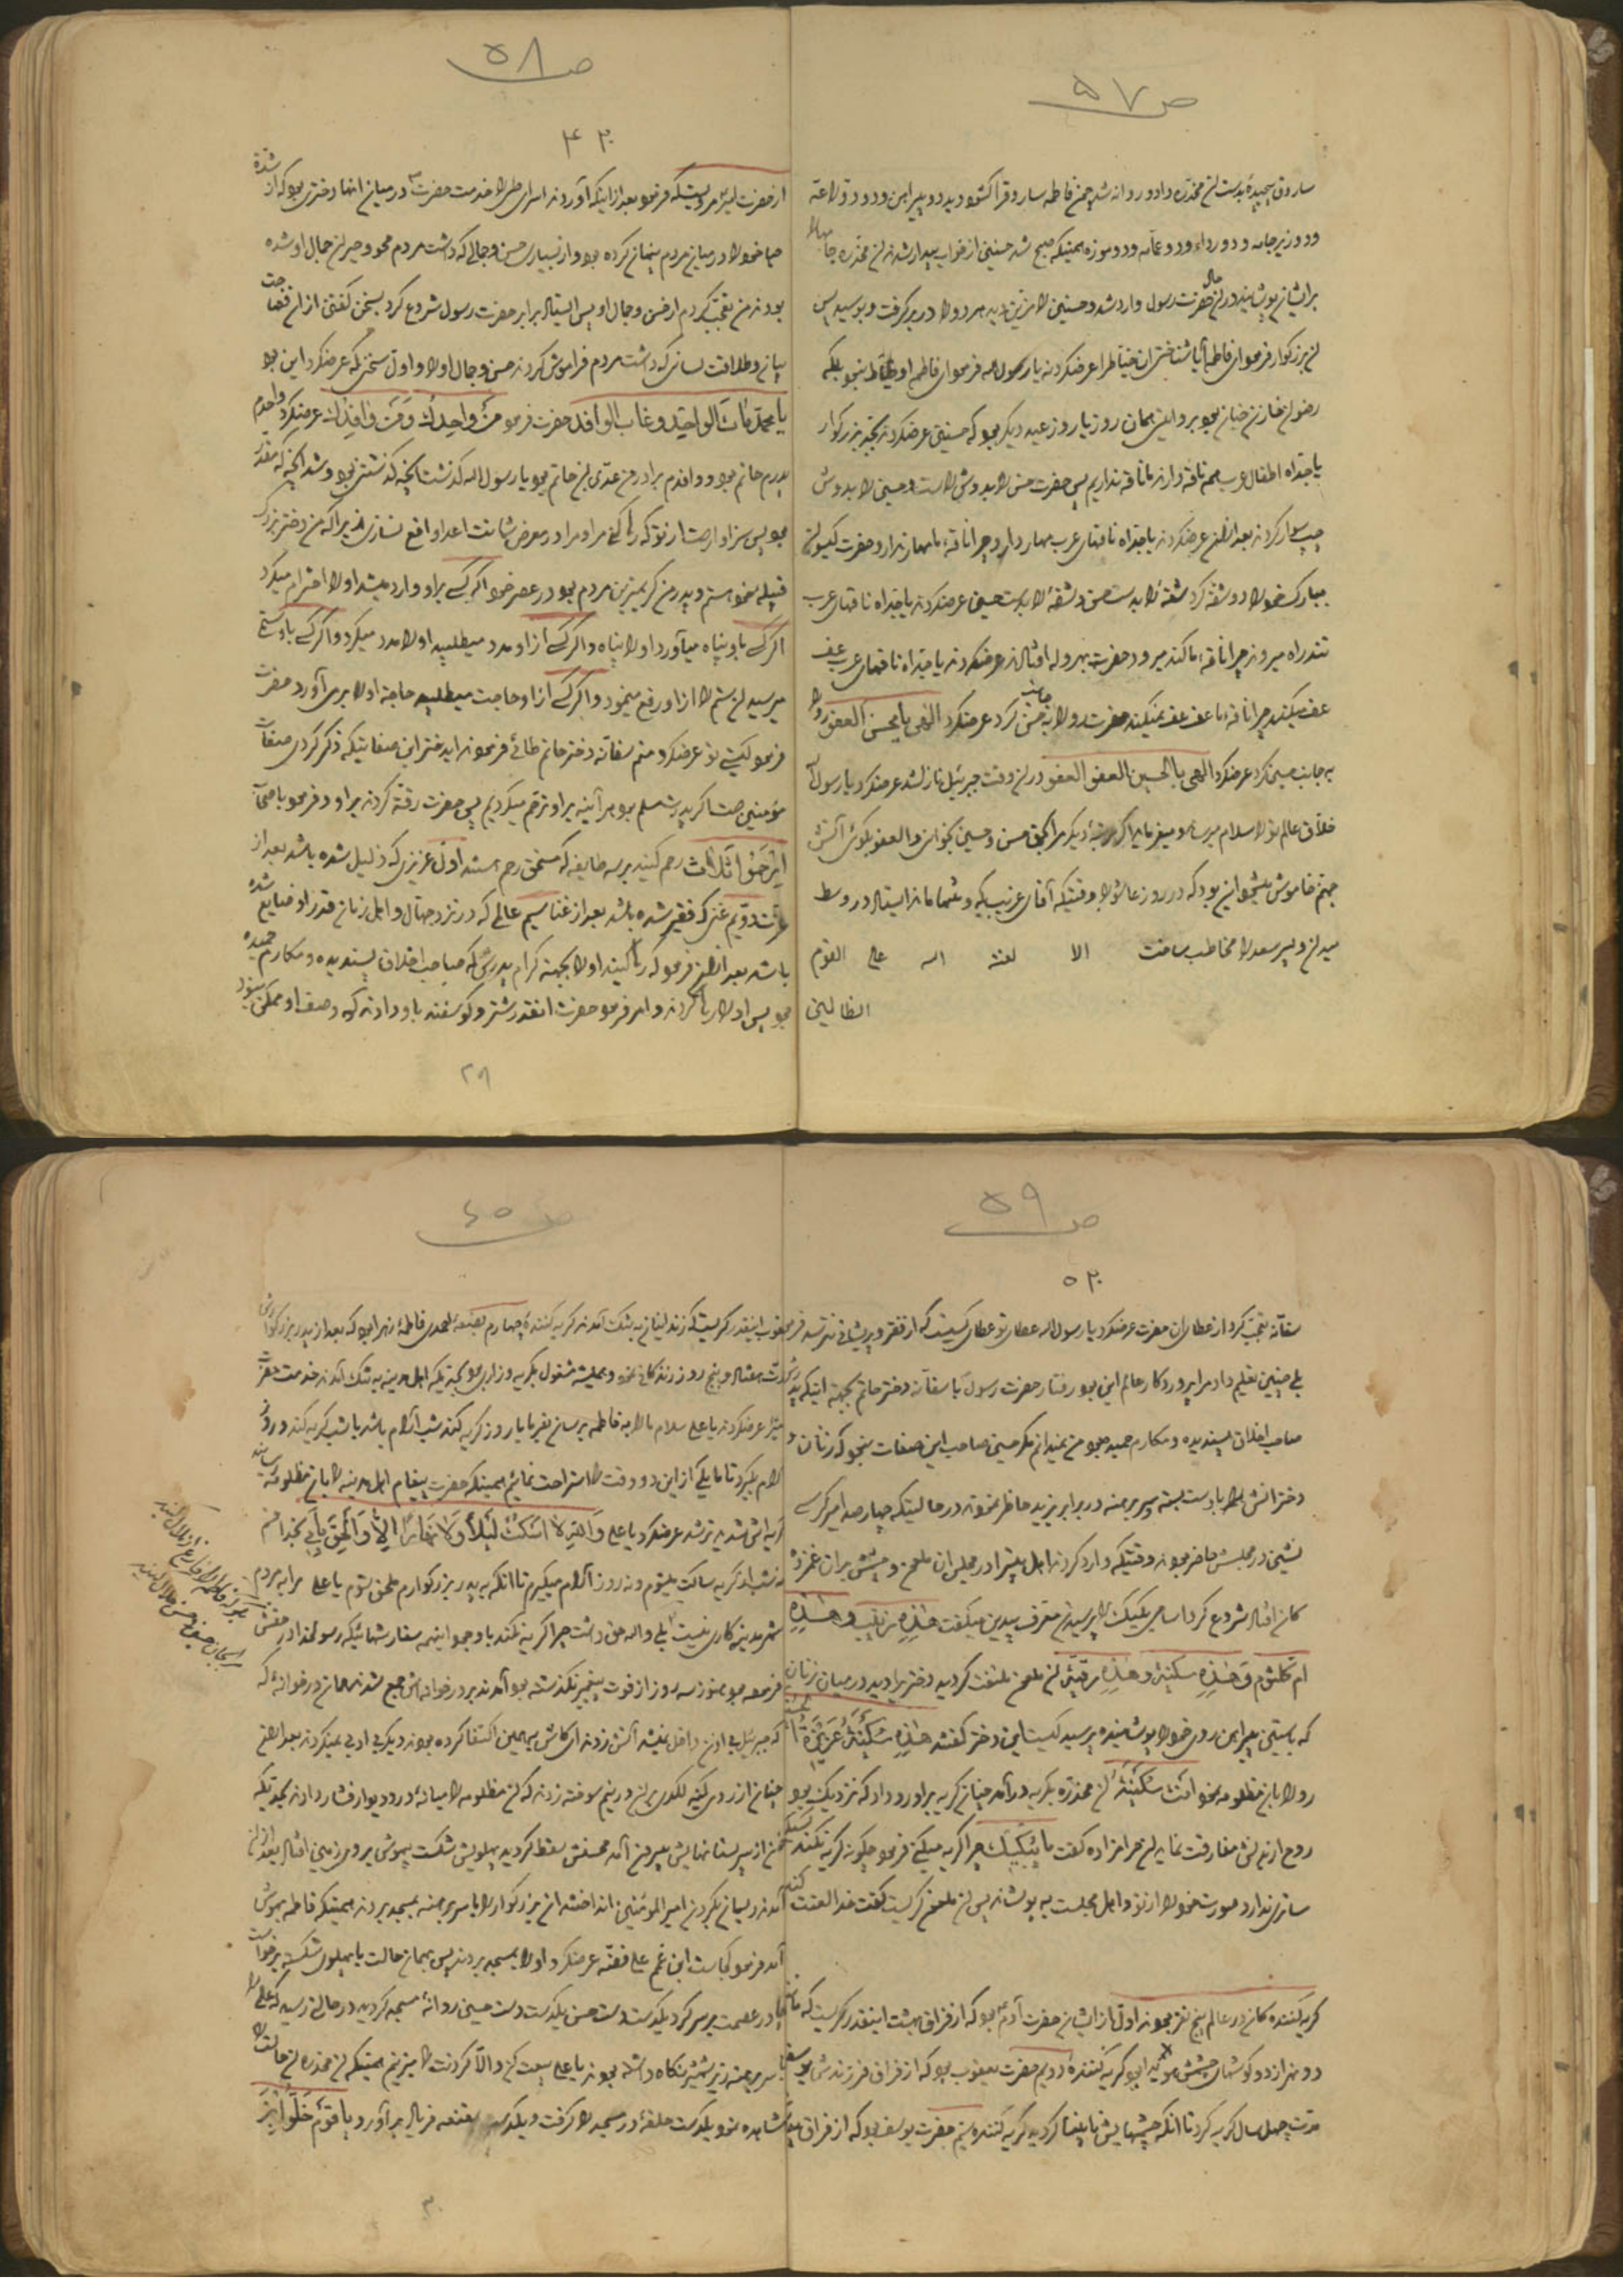 ص ۵۷
ساروق پیچیده بدست آن مخدّره داد و روانه شد چون فاطمه ساروق را گشود دید دو پیراهن و دو
و دو زیر جامه و دو رداء و دو عمّامه و دو موزه همینکه صبح شد حسنین از خواب بیدار شدند آن مخدّره جامها را
برایشان پوشانید در آن حال حضرت رسول وارد شد و حسنین را مزیّن دید هر دو را در بر گرفت و بوسید پس
آن بزرگوار فرمود ای فاطمه آیا شناختی آن خیّاط را عرضکردند یا رسول الله فرمود ای فاطمه او خیّاط نبود بلکه
رضوان خازن جنان بود در همان روز یا روز عید دیگر بود که حسنین عرضکردند بجدّ بزرگوار
یا جدّاه اطفال عرب همه ناقه دارند ما ناقه نداریم پس حضرت حسن را بدوش راست و حسین را بدوش
چپ سوار کردند بعد از آن عرضکردند یا جدّاه ناقهای عرب مهار دارد چرا ناقه ما مهار ندارد حضرت گیسوان
مبارک خود را دو شقّه کرد شقّه را بدست حسن و شقّه را بدست حسین عرضکردند یا جدّاه ناقهای عرب
تند راه میروند چرا ناقه ما کند میرود حضرت بهروله افتادند عرضکردند یا جدّاه ناقهای عرب عف
عف میکنند چرا ناقه ما عف عف نمیکند حضرت رو را بجانب حسن کرد عرضکرد الهی بالحسن العفو رو را
به جانب حسین کرد عرضکرد الهی بالحسین العفو العفو در آن وقت جبرئیل نازل شد عرضکرد یا رسول الله
خلّاق عالم تو را سلام میرساند و میفرماید اگر مرتبهٔ دیگر مرا بحق حسن و حسین بخوانی و العفو بگوئی آتش
جهنم خاموش میشود این بود که در روز عاشورا وقتیکه آقای غریب یکه و تنها ماند ایستاد در وسط
میدان و پسر سعد را مخاطب ساخت الا لعنة الله علی القوم
الظالمین
ص ۵۸
۳۴
از حضرت امیر مرویست که فرمود بعد از اینکه آوردند اسرای طی را خدمت حضرت در میان آنها دختری بود که از شدّة
حیا خود را در میان مردم پنهان کرده بود و از بسیاری حسن و جمالی که داشت مردم محو و حیران جمال او شده
بودند من تعجّب کردم از حسن و جمال او پس ایستاد برابر حضرت رسول شروع کرد بسخن گفتن از آن فصاحت
بیان و طلاقت لسانی که داشت مردم فراموش کردند حسن و جمال او را و اوّل سخنی که عرضکرد این بود
یا محمّد مات الواحد و غاب الوافد حضرت فرمود من واحدك و من وافدك عرضکرد واحدم
پدرم حاتم بود و وافدم برادر من عدّی بن حاتم بود یا رسول الله گذشت آنچه گذشتنی بود و شد آنچه که مقدّر
بود پس سزاوار است از تو که رها کنی مرا و مرا در معرض شماتت اعداء واقع نسازی زیرا که من دختر بزرگ
قبیله خود هستم و پدر من کریمترین مردم بود در عصر خود اگر کسی بر او وارد میشد او را احترام میکرد
اگر کسی باو پناه میآورد او را پناه و اگر کسی از او مدد میطلبید او را مدد میکرد و اگر کسی باو ستم
میرسید آن ستم را از او رفع مینمود و اگر کسی از او حاجت میطلبید حاجة او را بر می آورد حضرت
فرمود کیستی تو عرضکرد منم سفّانه دختر حاتم طائی فرمودند ایدختر این صفاتیکه ذکر کردی صفات
مؤمنین است اگر پدرت مسلم بود هر آینه بر او ترحّم میکردیم پس حضرت رقّة کردند بر او و فرمود یا صحابه
ارحموا ثلاث رحم کنید بر سه طایفه که مستحق رحم هستند اوّل عزیزی که ذلیل شده باشد بعد از
عزّت دوّیم غنی که فقیر شده باشد بعد از غنا سیم عالمی که در نزد جهّال و اهل زمان قدر او ضایع شده
باشد بعد از آن فرمود که رها کنید او را بجهة اکرام پدرش که صاحب اخلاق پسندیده و مکارم حمیده
بود پس او را رها کردند و امر فرمود حضرت آنقدر شتر و گوسفند باو دادند که وصف او ممکن نبود
۲۹
ص ۵۹
۳۵
سفّانه تعجّب کرد از عطای آن حضرت عرضکرد یا رسول الله عطای تو عطای کسیست که از فقر و پریشانی نترسد فرمود
بلی چنین تعلیم داد مرا پروردگار عالم این بود رفتار حضرت رسول با سفّانه دختر حاتم بجهة اینکه پدرش
صاحب اخلاق پسندیده و مکارم حمیده بود من نمیدانم مگر حسین صاحب این صفات نبود که زنان و
دخترانش را با دست بسته و سر برهنه در برابر یزید حاضر نمودند در حالتیکه چهارصد امیر کرسی
نشین در مجلس حاضر بودند وقتیکه وارد کردند اهل بیت را در مجلس آن ملعون
کان افتاد شروع کرد اسامی یکیک را پرسیدن معرّف بیدین میگفت هذه زینب و هذه
ام کلثوم و هذه سکینة و هذه رقیّة آن ملعون ملتفت گردید دختری را دید در میان زنان
که بآستین پیراهن روی خود را پوشانیده پرسید کیست این دختر گفتند هذه سکینة عزیزة
رو را بآن مظلومه نمود انت سکینة آن مخدّره بگریه درآمد چنان گریه بر او رو داد که نزدیک بود
روح از بدنش مفارقت نماید آن حرامزاده گفت ما یبکیك چرا گریه میکنی فرمود چگونه گریه نکند کسیکه
ساتری ندارد صورت خود را از تو و اهل مجلست بپوشاند پس آن ملعون گریست گفت خدا لعنت کند
گریه کننده کان در عالم پنج نفر بودند اوّل از ایشان حضرت آدم بود که از فراق بهشت اینقدر گریست که مانند
دو نهر از دو گوشهای چشمش هویدا بود گریه کنندهٔ دویم حضرت یعقوب بود که از فراق فرزندش یوسف
مدّت چهل سال گریه کرد تا آنکه چشمهایش نابینا گردید گریه کننده سیم حضرت یوسف بود که از فراق
ص ۶۰
یعقوب اینقدر گریست که زندانیان به تنگ آمدند گریه کنندهٔ چهارم بضعهٔ احمدی فاطمهٔ زهرا بود که بعد از پدر بزرگوارش
مدّت هفتاد و پنج روز زندگانی نمود و همیشه مشغول بگریه و زاری بود بحدّیکه اهل مدینه به تنگ آمدند خدمت حضرت
امیر عرضکردند یا علی سلام ما را به فاطمه برسان بفرما یا روز گریه کند شب آرام باشد یا شب گریه کند و روز
آرام بگیرد تا ما یکی از این دو وقت را استراحت نمائیم همینکه حضرت پیغام اهل مدینه را بآن مظلومه رسانید
گریه اش شدید تر شد عرضکرد یا علی والله لا اسکت لیلا و لا نهارا الا و الحق بابی بخدا قسم
نه شب از گریه ساکت میشوم و نه روز آرام میگیرم تا آنکه به پدر بزرگوارم ملحق شوم یا علی مرا به مردم
شهر مدینه کاری نیست بلی والله حق داشت چرا گریه نکند با وجود اینهمه سفارشهائیکه رسولخدا در حقش
فرموده بود هنوز سه روز از فوت پیغمبر نگذشته بود آمدند بر در خانه اش جمع شدند همان در خانهٔ که
که جبرئیل بی اذن داخل نمیشد آتش زدند ای کاش بهمین اکتفا کرده بودند و دیگر بی ادبی نمیکردند بعد از آن
چنان از روی کینه لگدی بر آن در نیم سوخته زدند که آن مظلومه را میانهٔ در و دیوار فشار دادند بحدّیکه
خون از سر پستانهایش بیرون آمد محسنش سقط گردید پهلویش شکست بیهوش بر روی زمین افتاد بعد از آن
آمدند ریسمان بگردن امیر المؤمنین انداختند آن بزرگوار را با سر برهنه بمسجد بردند همینکه فاطمه بهوش
آمد فرمود کجاست ابن عم علی فضّه عرضکرد او را بمسجد بردند پس بهمان حالت با پهلوی شکسته برخواست
چادر عصمت بر سر کرد بیکدست دست حسن بیکدست دست حسین روانهٔ مسجد گردید در حالی رسید که علی را
با سر برهنه زیر شمشیر نگاه داشته بودند یا علی بیعت کن و الّا گردنت را میزنیم همینکه آن مخدّره آن حالت را
مشاهده نمود بیکدست حلقهٔ در مسجد را گرفت و بیکدست مقنعه فریاد برآورد یا قوم خلّوا
۳۰